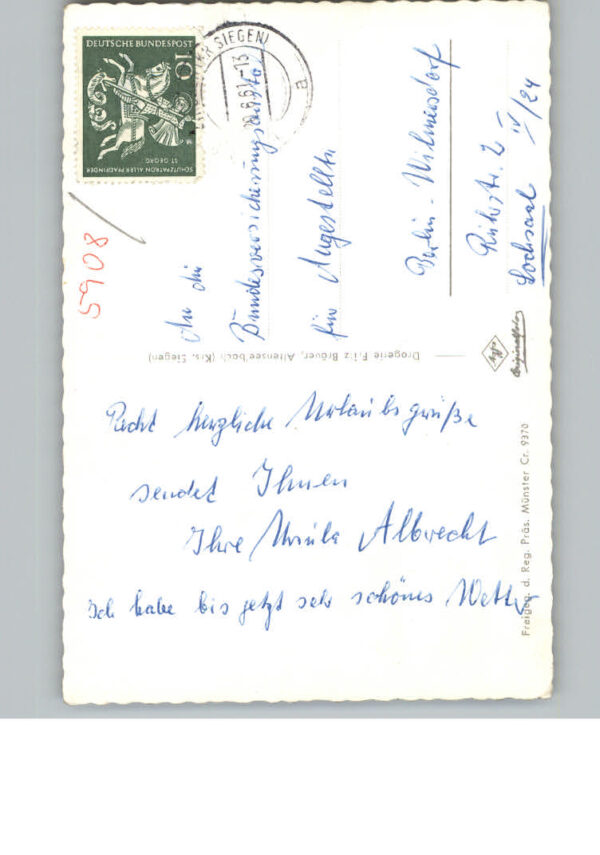 Recht herzliche Urlaubsgrüße
sendet Ihnen
Ihre Ursula Albrecht
Ich habe bis jetzt sehr schönes Wetter
An die
Bundesversicherungsanstalt
für Angestellte
Berlin-Wilmersdorf
Ruhrstr. 2
Lochsaal IV/24
DEUTSCHE BUNDESPOST
10
ST. GEORG
SCHUTZPATRON ALLER PFADFINDER
(KR SIEGEN)
6.61.-13
a
5908
Drogerie Fritz Bröver, Altenseelbach (Krs. Siegen)
Agfa
Originalfoto
Freigeg. d. Reg. Präs. Münster Cr. 9370